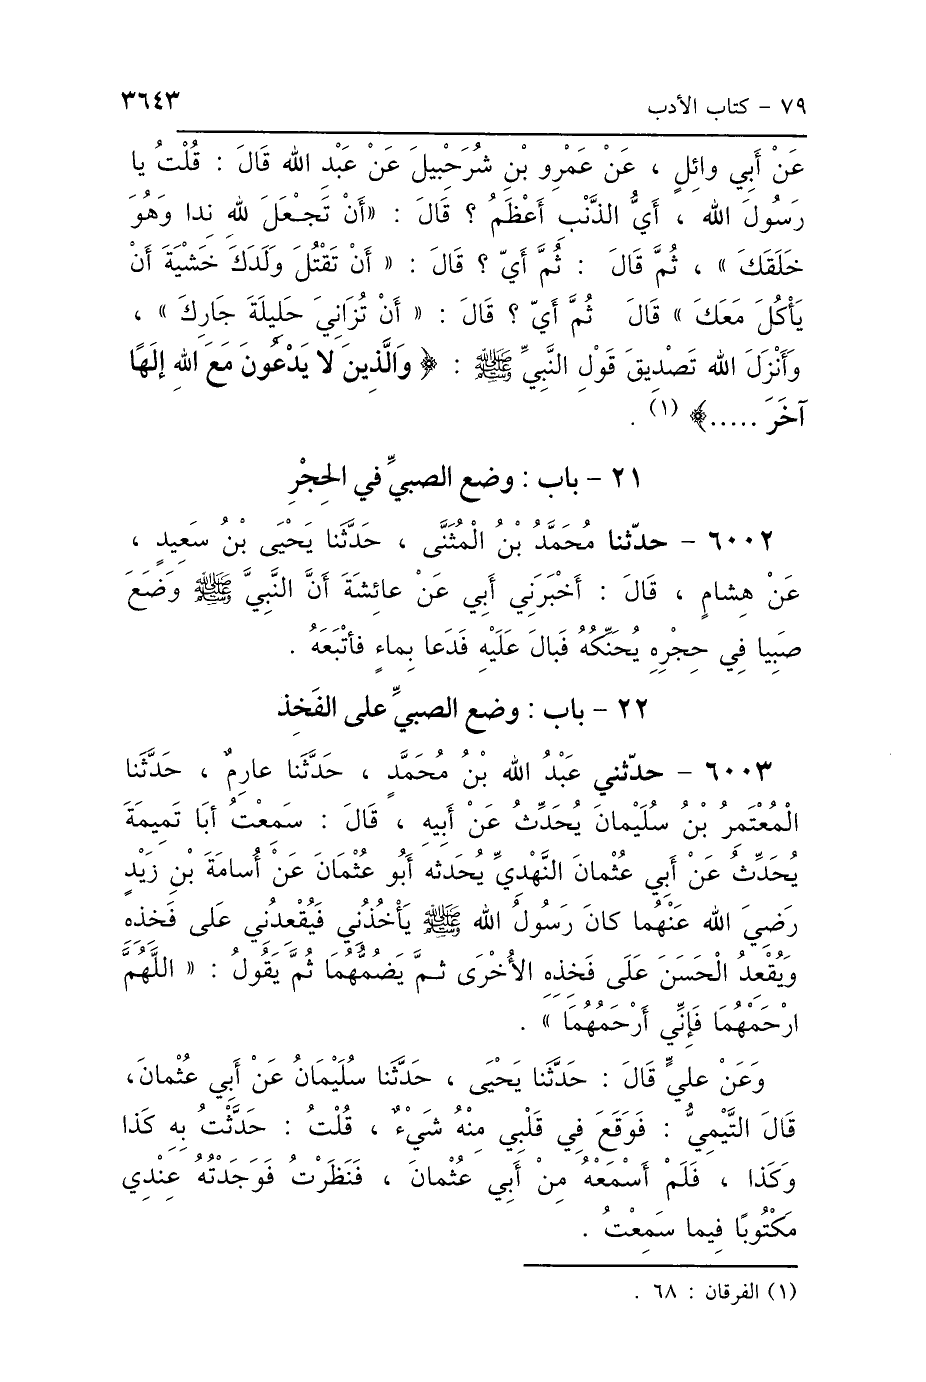 ٧٩ - كتاب الأدب ٣٦٤٣
عَنْ أَبِي وائِلٍ ، عَنْ عَمْرِو بْنِ شُرَحْبِيلَ عَنْ عَبْدِ الله قَالَ : قُلْتُ يا
رَسُولَ الله ، أَيُّ الذَّنْبِ أَعْظَمُ ؟ قَالَ : «أَنْ تَجْعَلَ لله ندا وَهُوَ
خَلَقَكَ » ، ثُمَّ قَالَ : ثُمَّ أَيّ ؟ قَالَ : « أَنْ تَقْتُلَ وَلَدَكَ خَشْيَةَ أَنْ
يَأْكُلَ مَعَكَ » قَالَ ثُمَّ أَيّ ؟ قَالَ : « أَنْ تُزَانِيَ حَلِيلَةَ جَارِكَ » ،
وَأَنْزَلَ الله تَصْدِيقَ قَوْلِ النَّبِيِّ ﷺ : ﴿ وَالَّذِينَ لا يَدْعُونَ مَعَ اللهِ إِلَهًا
آخَرَ .....﴾ (١) .
٢١ - باب : وضع الصبيِّ في الحِجْرِ
٦٠٠٢ - حدّثنا مُحَمَّدُ بْنُ الْمُثَنَّى ، حَدَّثَنَا يَحْيَى بْنُ سَعِيدٍ ،
عَنْ هِشامٍ ، قَالَ : أَخْبَرَنِي أَبِي عَنْ عائِشَةَ أَنَّ النَّبِيَّ ﷺ وَضَعَ
صَبِيا فِي حِجْرِهِ يُحَنِّكُهُ فَبَالَ عَلَيْهِ فَدَعا بِماءٍ فأتْبَعَهُ .
٢٢ - باب : وضع الصبيِّ على الفَخِذِ
٦٠٠٣ - حدّثني عَبْدُ الله بْنُ مُحَمَّدٍ ، حَدَّثَنَا عارِمٌ ، حَدَّثَنَا
الْمُعْتَمِرُ بْنُ سُلَيْمانَ يُحَدِّثُ عَنْ أَبِيهِ ، قَالَ : سَمِعْتُ أبَا تَمِيمَةَ
يُحَدِّثُ عَنْ أَبِي عُثْمانَ النَّهْدِيِّ يُحَدثه أَبُو عُثْمَانَ عَنْ أُسامَةَ بْنِ زَيْدٍ
رَضِيَ الله عَنْهُما كانَ رَسُولُ الله ﷺ يَأْخُذُنِي فَيُقْعِدُنِي عَلَى فَخِذِهِ
وَيُقْعِدُ الْحَسَنَ عَلَى فَخِذِهِ الأُخْرَى ثمَّ يَضُمُّهُمَا ثُمَّ يَقُولُ : « اللَّهُمَّ
ارْحَمْهُمَا فَإِنِّي أَرْحَمُهُمَا » .
وَعَنْ عليٍّ قَالَ : حَدَّثَنَا يَحْيَى ، حَدَّثَنا سُلَيْمَانُ عَنْ أَبِي عُثْمانَ،
قَالَ التَّيْمِيُّ : فَوَقَعَ فِي قَلْبِي مِنْهُ شَيْءٌ ، قُلْتُ : حَدَّثْتُ بِهِ كَذا
وَكَذا ، فَلَمْ أَسْمَعْهُ مِنْ أَبِي عُثْمانَ ، فَنَظَرْتُ فَوَجَدْتُهُ عِنْدِي
مَكْتُوبًا فِيما سَمِعْتُ .
(١) الفرقان : ٦٨ .